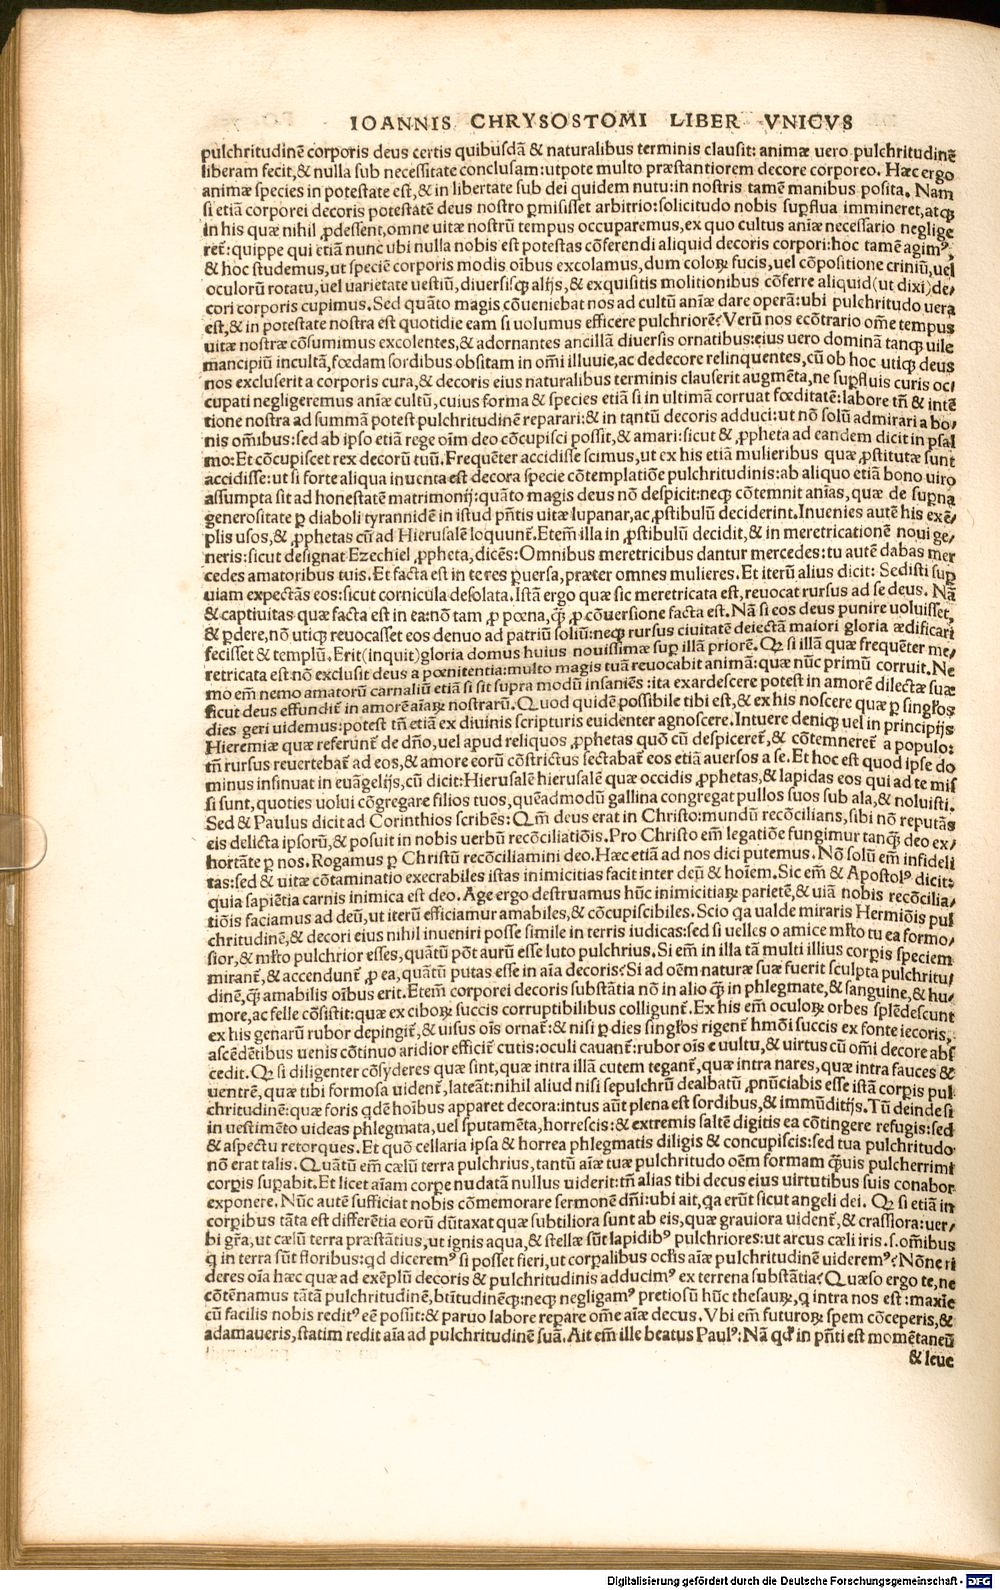 IOANNIS CHRYSOSTOMI LIBER VNICVS
pulchritudinē corporis deus certis quibusdā & naturalibus terminis clausit: animæ uero pulchritudinē
liberam fecit, & nulla sub necessitate conclusam: utpote multo præstantiorem decore corporeo. Hæc ergo
animæ species in potestate est, & in libertate sub dei quidem nutu: in nostris tamē manibus posita. Nam
si etiā corporei decoris potestatē deus nostro ꝑmisisset arbitrio: solicitudo nobis suꝑflua immineret, atqꝫ
in his quæ nihil ꝓdessent, omne uitæ nostrū tempus occuparemus, ex quo cultus aniæ necessario neglige
ret̄: quippe qui etiā nunc ubi nulla nobis est potestas cōferendi aliquid decoris corpori: hoc tamē agimꝰ,
& hoc studemus, ut speciē corporis modis oībus excolamus, dum coloꝝ fucis, uel cōpositione criniū, uel
oculorū rotatu, uel uarietate uestiū, diuersisqꝫ alijs, & exquisitis molitionibus cōferre aliquid (ut dixi) de/
cori corporis cupimus. Sed quāto magis cōueniebat nos ad cultū aniæ dare operā: ubi pulchritudo uera
est, & in potestate nostra est quotidie eam si uolumus efficere pulchriorē? Verū nos ecōtrario om̄e tempus
uitæ nostræ cōsumimus excolentes, & adornantes ancillā diuersis ornatibus: eius uero dominā tanqꝫ uile
mancipiū incultā, fœdam sordibus obsitam in om̄i illuuie, ac dedecore relinquentes, cū ob hoc utiqꝫ deus
nos excluserit a corporis cura, & decoris eius naturalibus terminis clauserit augmēta, ne suꝑfluis curis oc/
cupati negligeremus aniæ cultū, cuius forma & species etiā si in ultimā corruat fœditatē: labore tn̄ & intē
tione nostra ad summā potest pulchritudinē reparari: & in tantū decoris adduci: ut nō solū admirari a bo/
nis om̄ibus: sed ab ipso etiā rege oīm deo cōcupisci possit, & amari: sicut & ꝓpheta ad eandem dicit in psal
mo: Et cōcupiscet rex decorū tuū. Frequēter accidisse scimus, ut ex his etiā mulieribus quæ ꝓstitutæ sunt
accidisse: ut si forte aliqua inuenta est decora specie cōtemplatiōe pulchritudinis: ab aliquo etiā bono uiro
assumpta sit ad honestatē matrimonij: quāto magis deus nō despicit: neqꝫ cōtemnit anīas, quæ de suꝑna
generositate ꝑ diaboli tyrannidē in istud pn̄tis uitæ lupanar, ac ꝓstibulū deciderint. Inuenies autē his exē/
plis usos, & ꝓphetas cū ad Hierusalē loquunt̄. Etem̄ illa in ꝓstibulū decidit, & in meretricationē noui ge/
neris: sicut designat Ezechiel ꝓpheta, dicēs: Omnibus meretricibus dantur mercedes: tu autē dabas mer
cedes amatoribus tuis. Et facta est in te res ꝑuersa, præter omnes mulieres. Et iterū alius dicit: Sedisti suꝑ
uiam expectās eos: sicut cornicula desolata. Istā ergo quæ sic meretricata est, reuocat rursus ad se deus. Nā
& captiuitas quæ facta est in ea: nō tam ꝓ pœna, qꝫ̄ ꝓ cōuersione facta est. Nā si eos deus punire uoluisset,
& ꝑdere, nō utiqꝫ reuocasset eos denuo ad patriū soliū: neqꝫ rursus ciuitatē deiectā maiori gloria ædificari
fecisset & templū. Erit (inquit) gloria domus huius nouissimæ suꝑ illā priorē. Qꝫ si illā quæ frequēter me/
retricata est: nō exclusit deus a pœnitentia: multo magis tuā reuocabit animā: quæ nūc primū corruit. Ne
mo em̄ nemo amatorū carnaliū etiā si sit supra modū insaniēs: ita exardescere potest in amorē dilectæ suæ
sicut deus effundit̄ in amorē aīaꝝ nostrarū. Quod quidē possibile tibi est, & ex his noscere quæ ꝑ singłos
dies geri uidemus: potest tn̄ etiā ex diuinis scripturis euidenter agnoscere. Intuere deniqꝫ uel in principijs
Hieremiæ quæ referunt̄ de dn̄o, uel apud reliquos ꝓphetas quō cū despiceret̄, & cōtemneret̄ a populo:
tn̄ rursus reuertebat̄ ad eos, & amore eorū cōstrictus sectabat̄ eos etiā auersos a se. Et hoc est quod ipse do
minus insinuat in euāgelijs, cū dicit: Hierusalē hierusalē quæ occidis ꝓphetas, & lapidas eos qui ad te mis
si sunt, quoties uolui cōgregare filios tuos, quēadmodū gallina congregat pullos suos sub ala, & noluisti.
Sed & Paulus dicit ad Corinthios scribēs: Qm̄ deus erat in Christo: mundū recōcilians, sibi nō reputās
eis delicta ipsorū, & posuit in nobis uerbū recōciliatiōis. Pro Christo em̄ legatiōe fungimur tanqꝫ̄ deo ex/
hortāte ꝑ nos. Rogamus ꝑ Christū recōciliamini deo. Hæc etiā ad nos dici putemus. Nō solū em̄ infideli
tas: sed & uitæ cōtaminatio execrabiles istas inimicitias facit inter deū & hoīem. Sic em̄ & Apostolꝰ dicit:
quia sapiētia carnis inimica est deo. Age ergo destruamus hūc inimicitiaꝝ parietē, & uiā nobis recōcilia/
tiōis faciamus ad deū, ut iterū efficiamur amabiles, & cōcupiscibiles. Scio qa ualde miraris Hermiōis pul
chritudinē, & decori eius nihil inueniri posse simile in terris iudicas: sed si uelles o amice młto tu ea formo/
sior, & młto pulchrior esses, quātū pōt aurū esse luto pulchrius. Si em̄ in illa tā multi illius corꝑis speciem
mirant̄, & accendunt̄ ꝓ ea, quātū putas esse in aīa decoris? Si ad oēm naturæ suæ fuerit sculpta pulchritu/
dinē, qꝫ̄ amabilis oībus erit. Etem̄ corporei decoris substātia nō in alio qꝫ̄ in phlegmate, & sanguine, & hu/
more, ac felle cōsistit: quæ ex ciboꝝ succis corruptibilibus colligunt̄. Ex his em̄ oculoꝝ orbes splēdescunt
ex his genarū rubor depingit̄, & uisus oīs ornat̄: & nisi ꝑ dies singłos rigent̄ hmōi succis ex fonte iecoris,
ascēdētibus uenis cōtinuo aridior efficit̄ cutis: oculi cauant̄: rubor oīs e uultu, & uirtus cū om̄i decore abs
cedit. Qꝫ si diligenter cōsyderes quæ sint, quæ intra illā cutem tegant̄, quæ intra nares, quæ intra fauces &
uentrē, quæ tibi formosa uident̄, lateāt: nihil aliud nisi sepulchrū dealbatū ꝓnūciabis esse istā corꝑis pul
chritudinē: quæ foris qdē hoībus apparet decora: intus aūt plena est sordibus, & immūditijs. Tū deinde si
in uestimēto uideas phlegmata, uel sputamēta, horrescis: & extremis saltē digitis ea cōtingere refugis: sed
& aspectu retorques. Et quō cellaria ipsa & horrea phlegmatis diligis & concupiscis: sed tua pulchritudo
nō erat talis. Quātū em̄ cælū terra pulchrius, tantū aīæ tuæ pulchritudo oēm formam qꝫ̄uis pulcherrimi
corꝑis suꝑabit. Et licet aīam corpe nudatā nullus uiderit: tn̄ alias tibi decus eius uirtutibus suis conabor
exponere. Nūc autē sufficiat nobis cōmemorare sermonē dn̄i: ubi ait, qa erūt sicut angeli dei. Qꝫ si etiā in
corꝑibus tāta est differētia eorū dūtaxat quæ subtiliora sunt ab eis, quæ grauiora uident̄, & crassiora: uer/
bi gr̄a, ut cælū terra præstātius, ut ignis aqua, & stellæ sūt lapidibꝰ pulchriores: ut arcus cæli iris. s. om̄ibus
q in terra sūt floribus: qd diceremꝰ si posset fieri, ut corꝑalibus ocłis aīæ pulchritudinē uideremꝰ? Nōne ri
deres oīa hæc quæ ad exēplū decoris & pulchritudinis adducimꝰ ex terrena substātia? Quæso ergo te, ne
cōtēnamus tātā pulchritudinē, btītudinēqꝫ: neqꝫ negligamꝰ pretiosū hūc thesauꝝ, q intra nos est: maxīe
cū facilis nobis reditꝰ eē possit: & paruo labore reꝑare om̄e aīæ decus. Vbi em̄ futuroꝝ spem cōceperis, &
adamaueris, statim redit aīa ad pulchritudinē suā. Ait em̄ ille beatus Paulꝰ: Nā qđ in pn̄ti est momētaneū
& leue
Digitalisierung gefördert durch die Deutsche Forschungsgemeinschaft - DFG